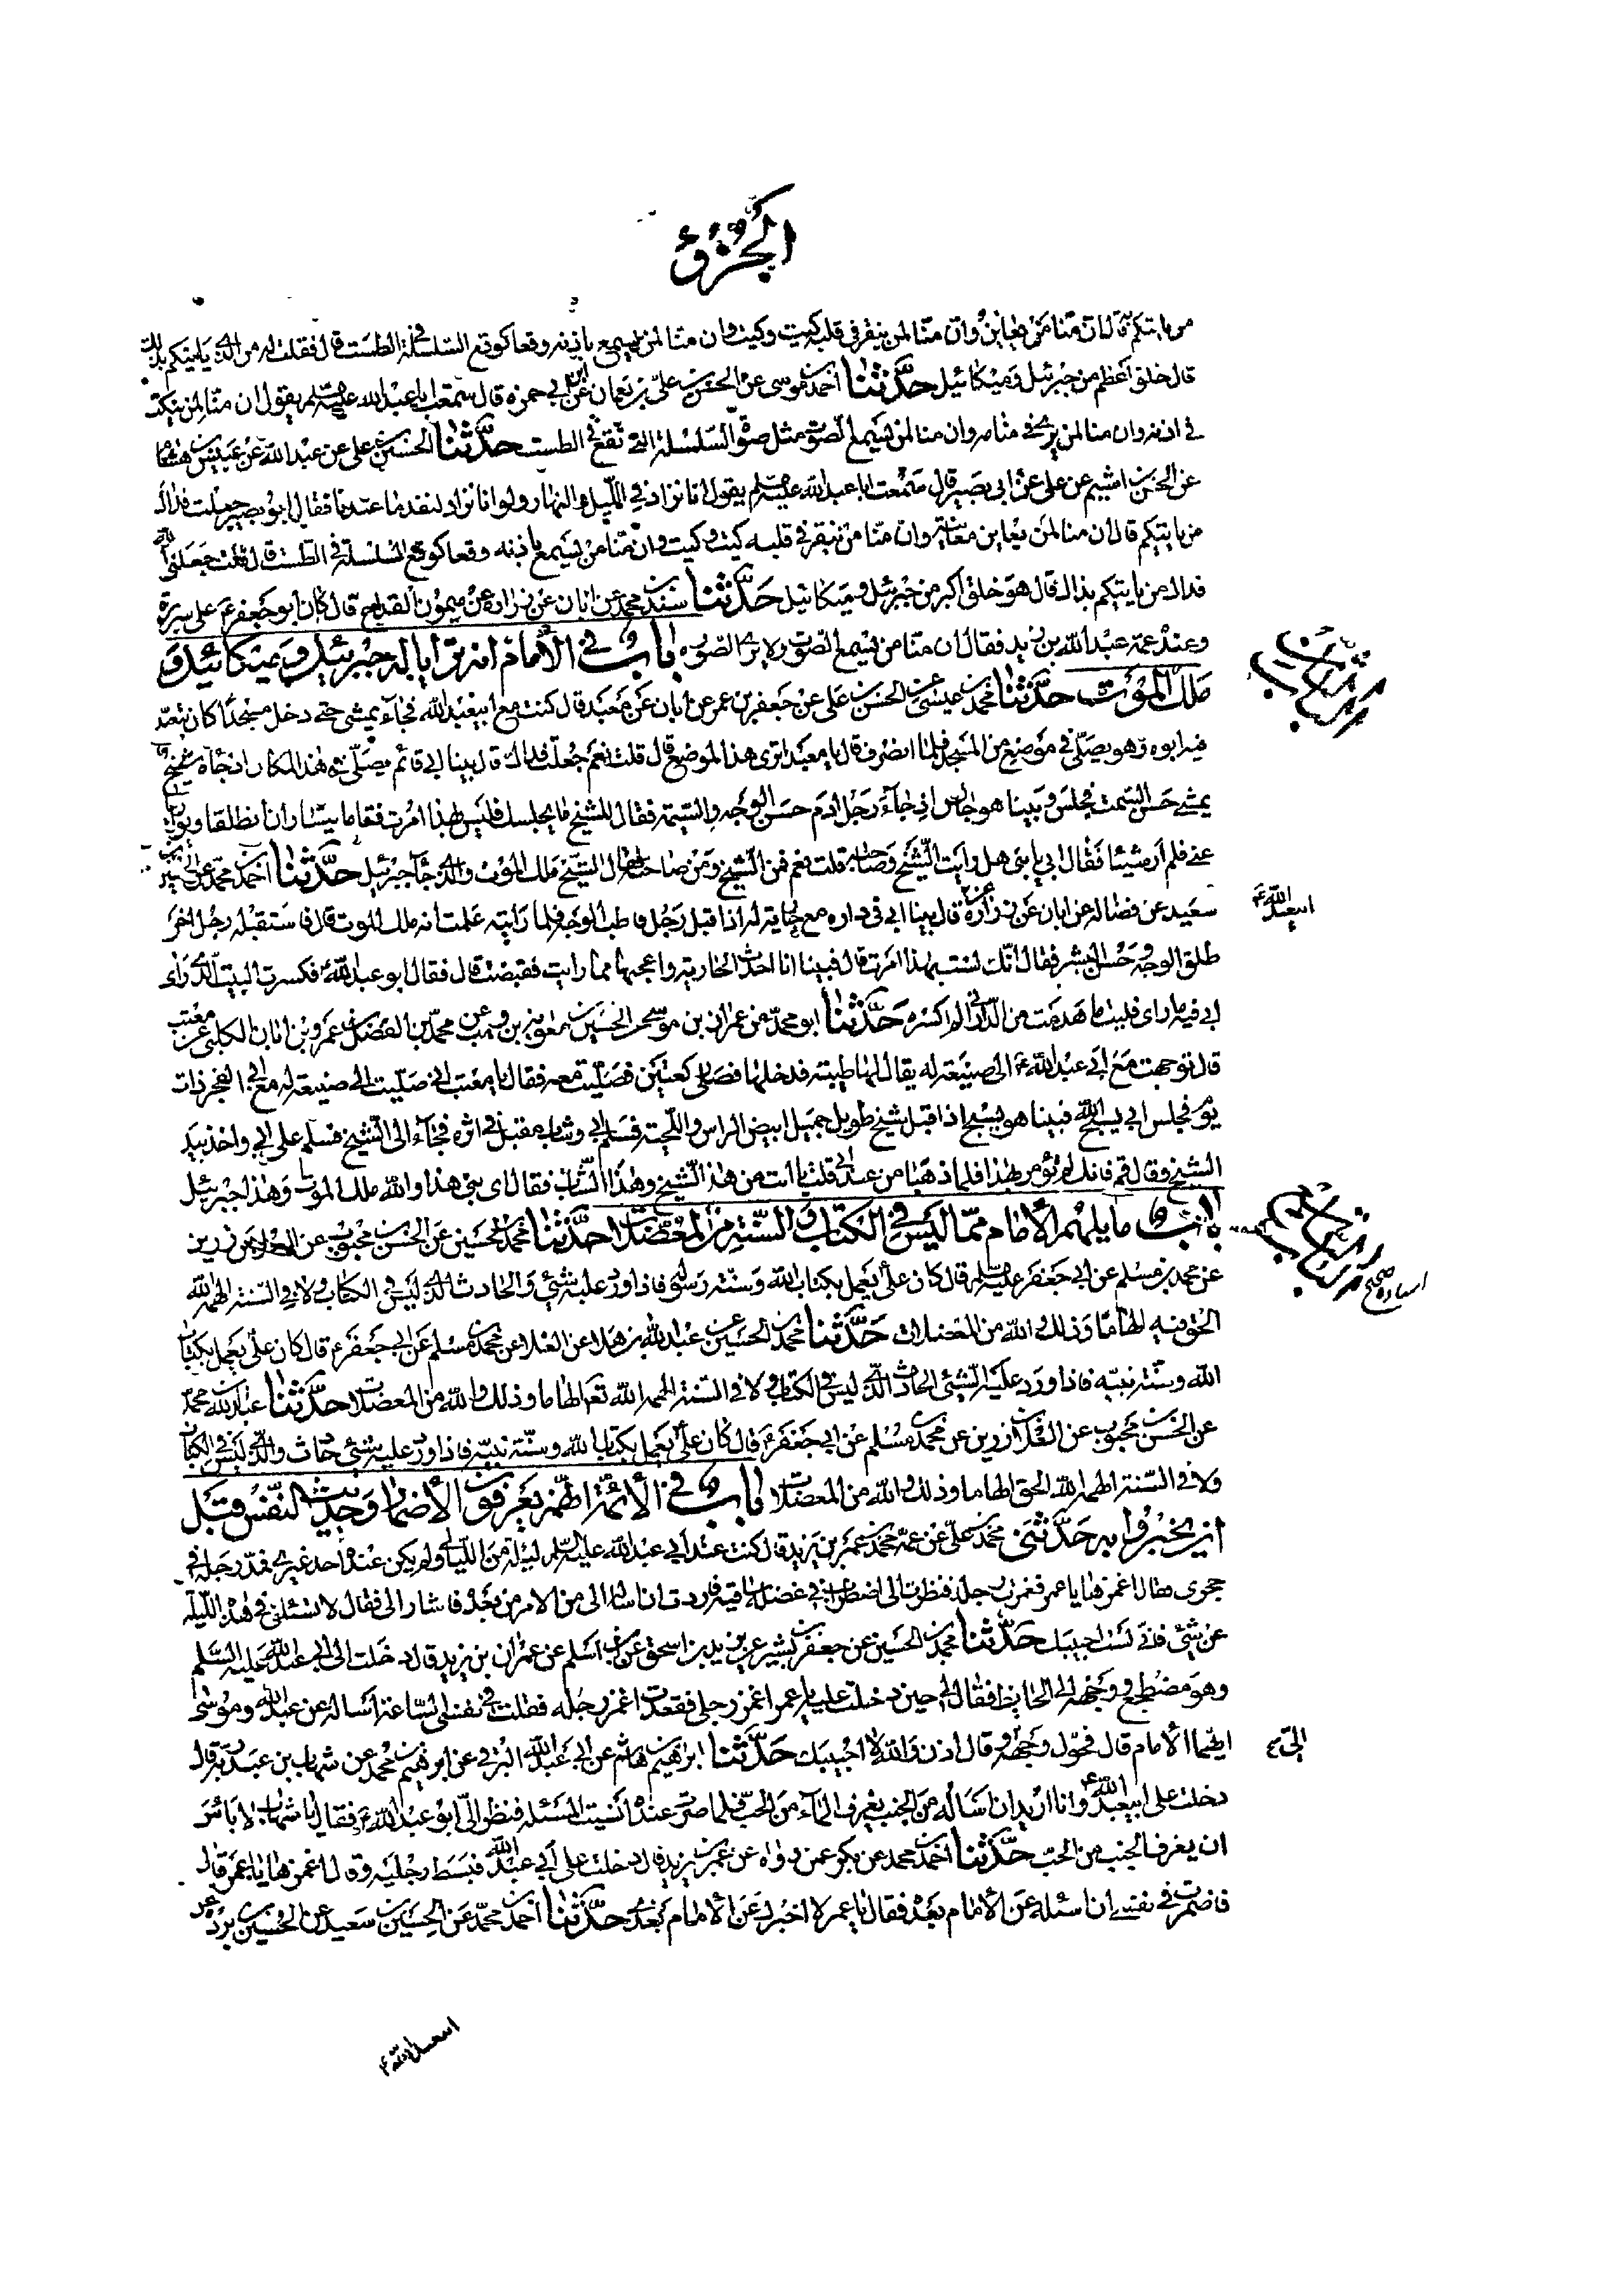 الجزؤ
من يأتيكم قال ان منّا من يعاين وان منّا لمن ينقر في قلبه كيت وكيت وان منا لمن يسمع باذنه وقعا كوقع السلسلة في الطست قال فقلت له من الذي ياتيكم بذلك
قال خلق اعظم من جبرئيل وميكائيل حدّثنا احمد بن موسى عن الحسن بن علي بن نعمان عن ابن ابي حمزه قال سمعت ابا عبد الله عليه السلم يقول ان منّا لمن ينكت
في اذنه وان منا لمن يرى في منامه وان منا لمن يسمع الصوت مثل صوت السّلسلة التي تقع في الطست حدّثنا الحسين بن علي عن عبد الله عن عبيس بن هشام
عن الحسن بن اشيم عن علي عن ابي بصير قال سمعت ابا عبد الله عليه السلم يقول انا نزاد في الليل والنهار ولو انا نزاد لنفد ما عندنا فقال ابو بصير جعلت فداك
من ياتيكم قال ان منا لمن يعاين معاينة وان منّا من ينقر في قلبه كيت وكيت وان منّا من يسمع باذنه وقعا كوقع السلسلة في الطست قال قلت جعلني الله
فداك من ياتيكم بذاك قال هو خلق اكبر من جبرئيل وميكائيل حدّثنا سندي بن محمد عن ابان عن زراره عن ميمون القداح قال كان ابو جعفر ع على سريره
وعنده عمه عبد الله بن زيد فقال ان منا من يسمع الصوت ولا يرى الصوره باب في الأمام انه ترايا له جبرئيل وميكائيل و
ملك الموت حدّثنا محمد بن عيسى عن الحسن بن علي عن جعفر بن عمر عن ابان عن معبد قال كنت مع ابيعبد الله فجآء يمشي حتى دخل مسجدا كان يتعبّد
فيه ابوه وهو يصلّي في موضع من المسجد فلمّا انصرف قال يا معبد اترى هذا الموضع قال قلت نعم جعلت فداك قال بينا ابي قائم يصلّي في هذا المكان اذ جاءه شيخ
يمشي حسن السمت فجلس وبينا هو جالس اذ جآء رجل ادم حسن الوجه والسيمة فقال للشيخ ما يجلسك فليس بهذا امرت فقاما يتسارّان انطلقا وتواريا
عني فلم ار شيئا فقال ابي يا بني هل رايت الشيخ وصاحبه قلت نعم فمن الشيخ ومن صاحبه قال الشيخ ملك الموت والذي جآء جبرئيل حدّثنا احمد بن محمد عن الحسين بن
سعيد عن فضاله عن ابان عن زرارة قال بينا ابي في داره مع جارية له اذا قبل رجل قاطب الوجه فلما رايته علمت انه ملك الموت قال فاستقبله رجل اخر
طلق الوجه وحسن البشر فقال انّك لست بهذا امرت قال فبينا انا احدث الجارية واعجبها مما رايت فقبضت قال فقال ابو عبد الله ع فكسرت البيت الذي راى
ابي فيه ما راى فليت ما هدمت من الدار اني لم اكسره حدّثنا ابو محمد عن عمران بن موسى عن الحسين بن معوية بن وهب عن محمد بن الفضيل عن عمرو بن ابان الكلبي عن معتب
قال توجهت مع ابي عبد الله ع الى ضيعة له يقال لها طيبة فدخلها فصلى ركعتين فصلّيت معه فقال يا معتب اني صلّيت الى ضيعة له مع ابي الفجر ذات
يوم فجلس ابي يسبح الله فبينا هو يسبح اذا قبل شيخ طويل جميل ابيض الراس واللحية فسلم على ابي وشاب مقبل في اثره فجآء الى الشيخ فسلم على ابي واخذ بيد
الشيخ وقال قم فانك لم تؤمر بهذا فلما ذهبا من عند ابي قلت يا ابت من هذا الشيخ وهذا الشّاب فقال اي بني هذا والله ملك الموت وهذا جبرئيل
باب ما يلهم الأمام ممّا ليس في الكتاب والسّنة من المعضلات حدّثنا محمد بن الحسين عن الحسن بن محبوب عن العلاء بن رزين
عن محمد بن مسلم عن ابي جعفر عليه السلم قال كان علي يعمل بكتاب الله وسنّة رسوله فاذا ورد عليه شئي والحادث الذي ليس في الكتاب ولا في السّنة الهمه الله
الحق فيه الهاما وذلك والله من المعضلات حدّثنا محمد بن الحسين عن عبد الله بن هلال عن العلاء عن محمد بن مسلم عن ابي جعفر ع قال كان علي يعمل بكتاب
الله وسنّة نبيّه فاذا ورد عليه الشئي الحادث الذي ليس في الكتاب ولا في السّنة الهمه الله تعالى الهاما وذلك والله من المعضلات حدّثنا عبد الله بن محمد
عن الحسن بن محبوب عن العلاء بن رزين عن محمد بن مسلم عن ابي جعفر ع قال كان علي يعمل بكتاب الله وسنّة نبيّه فاذا ورد عليه شئي حادث والذي ليس في الكتاب
ولا في السّنة الهمه الله الحق الهاما وذلك والله من المعضلات باب في الأئمة انهم يعرفون الأضمار وحديث النفس قبل
ان يخبروا به حدّثني محمد بن علي عن عمّه محمد بن عمر بن يزيد قال كنت عند ابي عبد الله عليه السّلم ليلة من الليالي ولم يكن عنده احد غيري فمدّ رجله في
حجري فقال اغمزها يا عمر فغمزت رجله فنظرت الى اضطراب في عضلة ساقيه فاردت ان اساله الى من الامر من بعده فاشار الي فقال لا تسئلني في هذه الليلة
عن شئي فاني لست اجيبك حدّثنا محمد بن الحسين عن جعفر بن بشير عن يزيد بن اسحق عن ابن اسلم عن عمران بن يزيد قال دخلت الى ابي عبد الله عليه السّلم
وهو مضطجع ووجهه الى الحايط فقال لي حين دخلت عليه يا عمر اغمز رجلي فقعدت اغمز رجله فقلت في نفسي السّاعة اساله عن عبد الله وموسى
ايهما الأمام قال فحوّل وجهه وقال اذن والله لا اجيبك حدّثنا ابراهيم بن هاشم عن ابي عبد الله البرقي عن ابراهيم بن محمد عن شهاب بن عبد ربه قال
دخلت على ابيعبد الله ع وانا اريد ان ساله من الجنب يغرف المآء من الحبّ فلما صرت عنده انسيت المسئلة فنظر الىّ ابو عبد الله ع فقال يا شهاب لا باس
ان يغرف الجنب من الحبّ حدّثنا احمد بن محمد عن بكر عمن رواه عن عمر بن يزيد قال دخلت على ابي عبد الله فبسط رجليه وقال اغمزها يا عمر قال
فاضمرت في نفسي ان اسئله عن الأمام بعده فقال يا عمر لا اخبرك عن الأمام بعدي حدّثنا احمد بن محمد عن الحسين بن سعيد عن الحسين بن برده عن
ابيعبد الله ع
اسناده صحيح
الىّ
ابيعبد الله ع